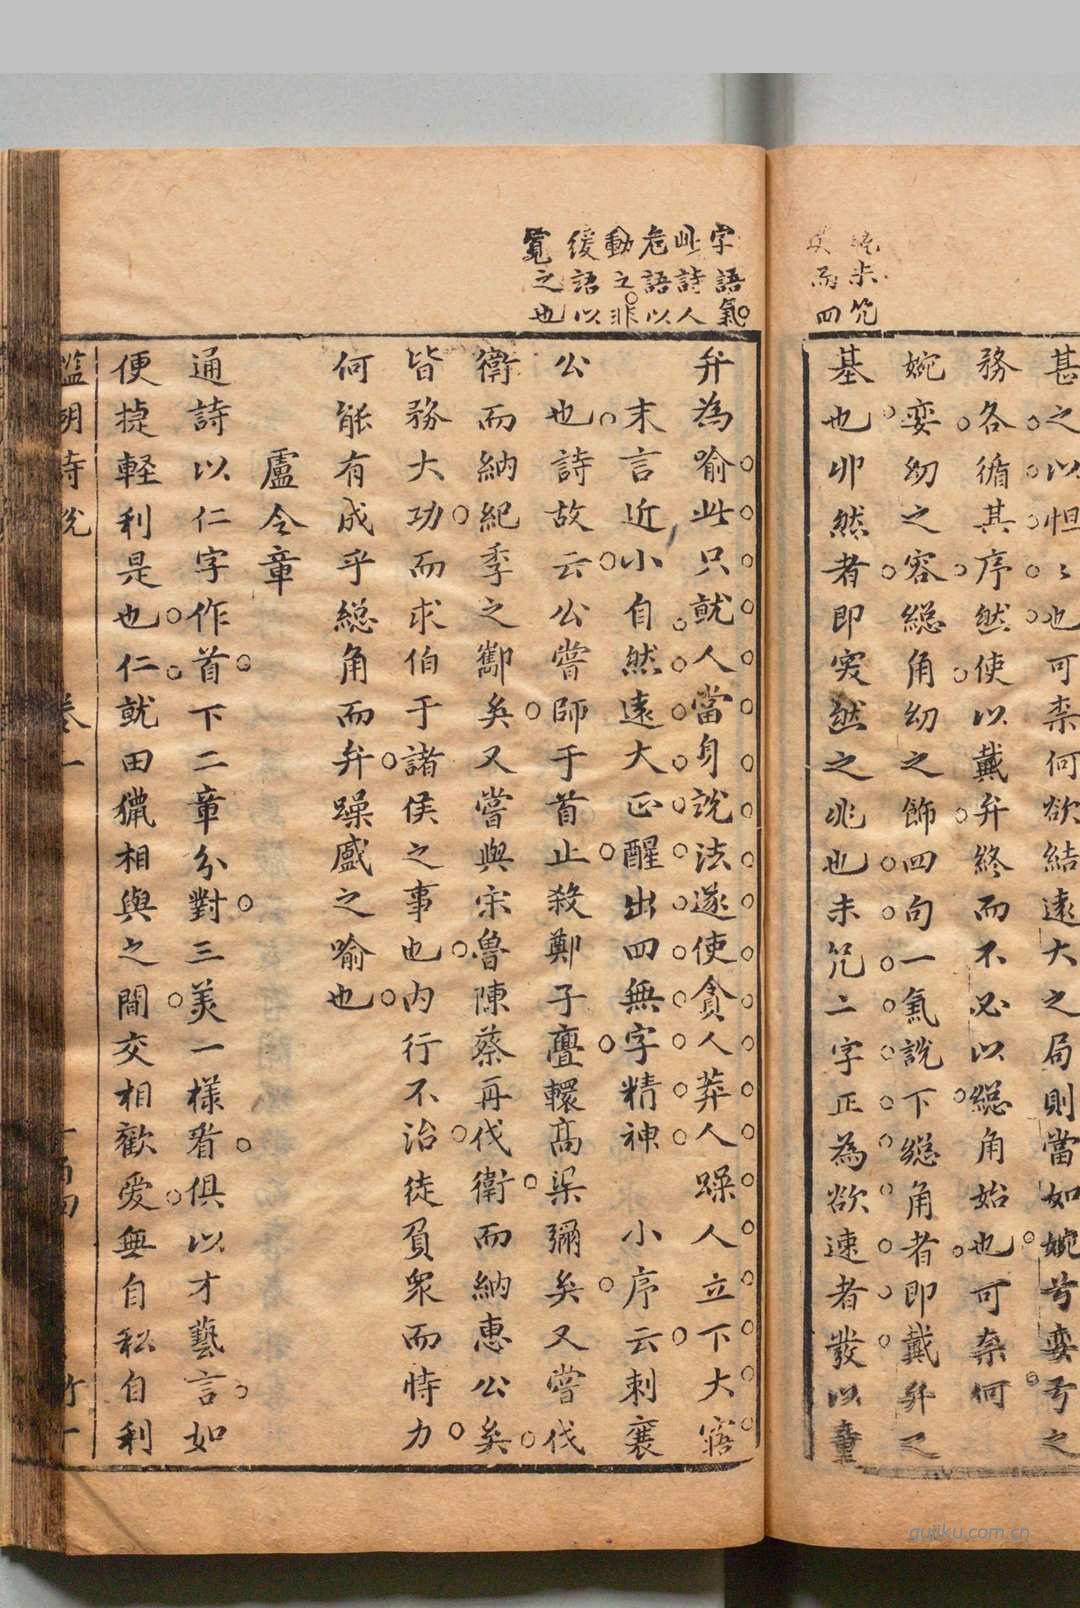 甚之以怛〻也可柰何欲結遠大之局則當如婉兮孌兮之
務各循其序然使以戴弁終而不必以緫角始也可柰何
婉孌幼之容緫角幼之飾四句一氣說下緫角者即戴弁之
基也丱然者即突然之兆也未笄二字正為欲速者發以童
未笄
而四
字語氣
此詩人
危語以
動之非
緩語以
寬之也
弁為喻此只就人當身說法遂使貪人莽人躁人立下大寤
末言近小自然遠大正醒出四無字精神 小序云刺襄
公也詩故云公嘗師于首止殺鄭子亹轘髙渠彌矣又嘗伐
衛而納紀季之酅矣又嘗與宋魯陳蔡再伐衛而納惠公矣
皆務大功而求伯于諸侯之事也内行不治徒負衆而恃力
何能有成乎緫角而弁躁盛之喻也
盧令章
通詩以仁字作首下二章分對三美一樣看俱以才藝言如
便捷軽利是也仁就田獵相與之間交相歡愛無自私自利
鑑湖詩說
卷一
竹一
gujiku.com.cn